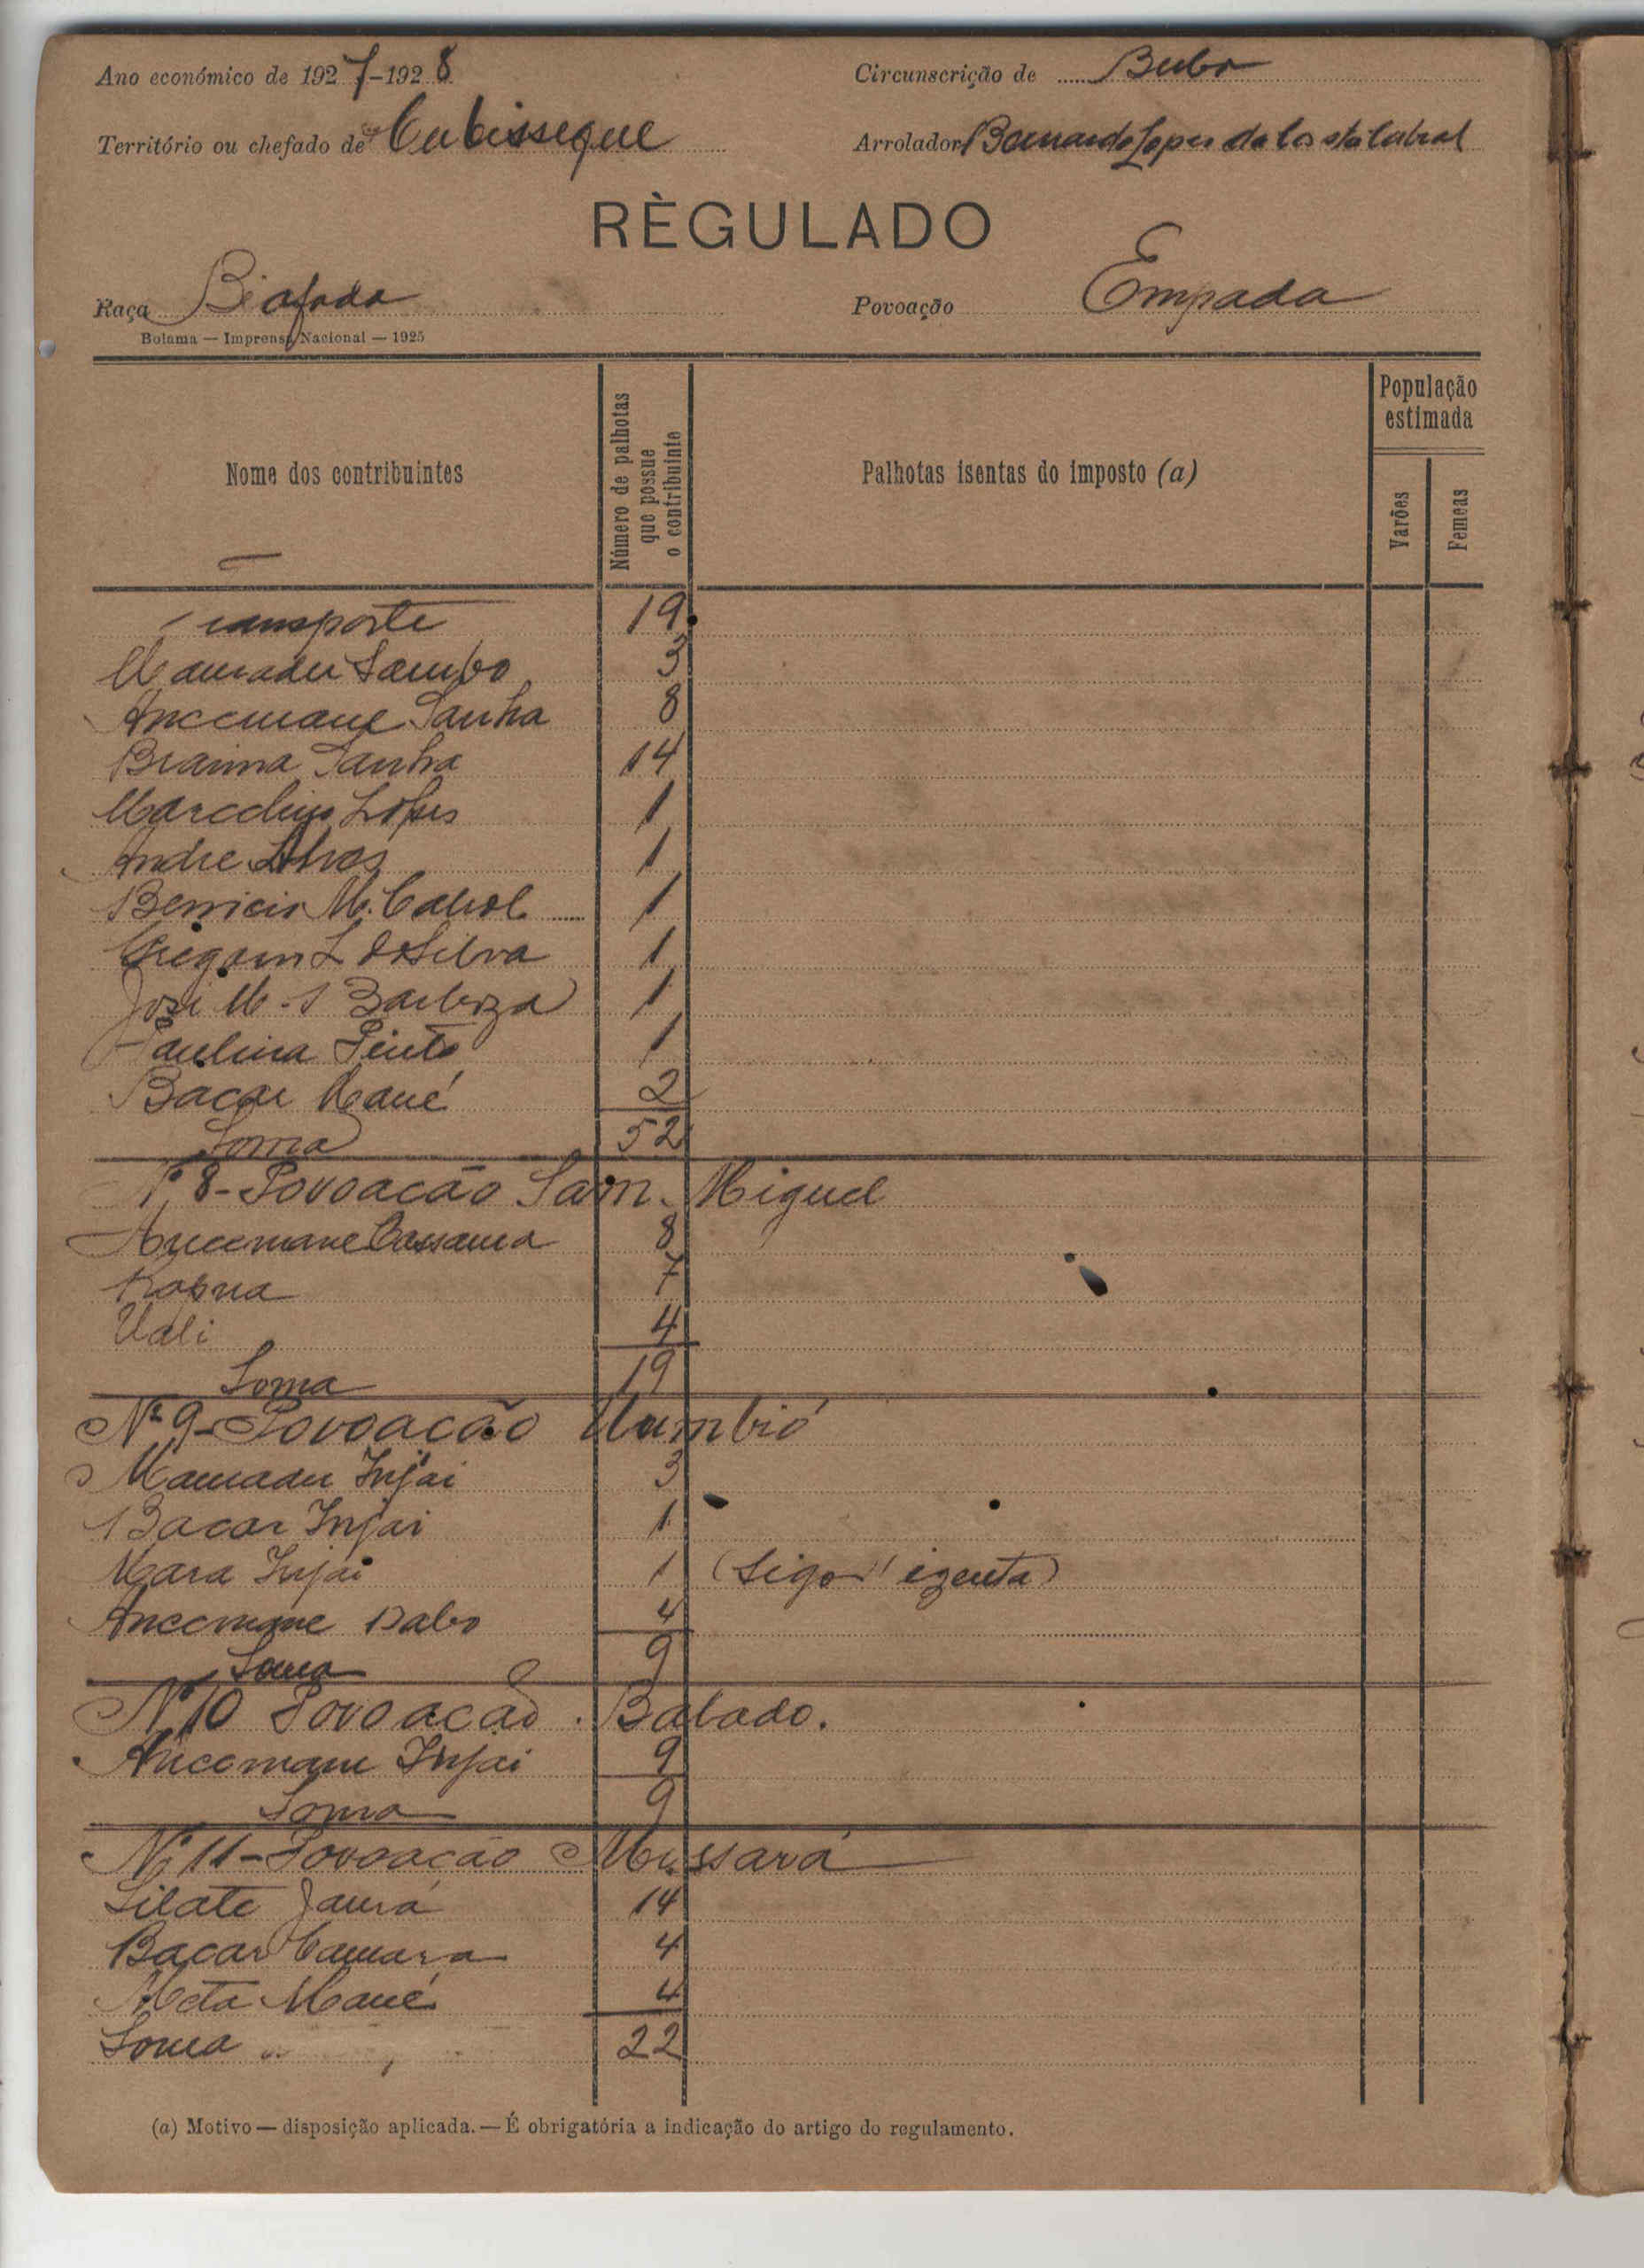 Ano económico de 1927-1928
Circunscrição de Bubo
Território ou chefado de Cubisseque
Arrolador Bernardo Lopes da Costa Cabral
RÈGULADO
Raça Biafada
Povoação Empada
Bolama — Imprensa Nacional — 1925
Nome dos contribuintes
Número de palhotas que possue o contribuinte
Palhotas isentas do imposto (a)
População estimada
Varões
Femeas
Transporte 19
Mamadu Sambo 3
Ancemane Sanha 8
Braima Sanha 14
Marcelino Lopes 1
Andre Alves 1
Benicio M. Cabral 1
Gregorio L da Silva 1
José M. S Barboza 1
Paulina Pinto 1
Bacar Mané 2
Soma 52
Nº 8 - Povoacão Sam. Miguel
Ancemane Cassama 8
7
Uali 4
Soma 19
Nº 9 - Povoacão
Mamadu Injai 3
Bacar Injai 1
Mara Injai 1 izenta)
Ancemane Dabo 4
Soma 9
Nº 10 Povoacão. Batado.
Ancemane Injai 9
Soma 9
Nº 11 - Povoacão Mussará
Silate Jaurá 14
Bacar Camara 4
Meta Mané 4
Soma 22
(a) Motivo — disposição aplicada. — É obrigatória a indicação do artigo do regulamento.